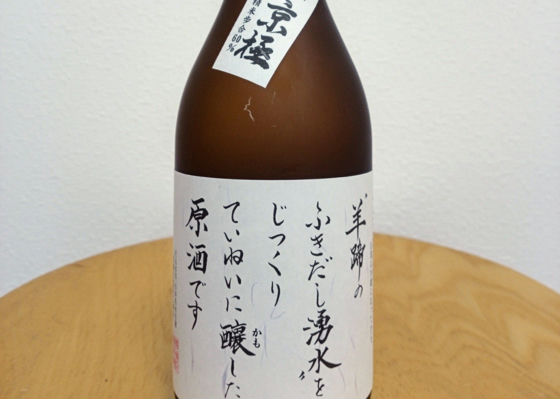 京極
精米歩合60%
羊蹄の
ふきだし湧水を
じっくり
ていねいに醸した
かも
原酒です